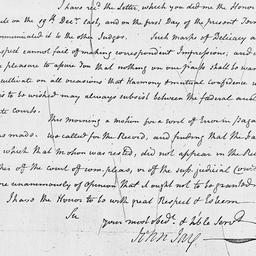 I have recd. the Letter, which you did me the Honor
on the 19th Decr. last, and on the first Day of the present Term
communicated it to the other Judges. Such marks of Delicacy a
espect cannot fail of making correspondent Impressions; and
pleasure to assure You that nothing on our parts shall be wan
cultivate on all occasions that Harmony & mutual confidence
is to be wished may always subsist between the federal and
ate courts.
This morning a motion for a writ of Error in
was made. We called for the Record, and finding that the
which that motion was rested, did not appear in the Re
ther of the court of com. pleas, or of the sup. judicial Cou
ere unanimously of opinion that it ought not to be granted
I have the Honor to be with great Respect & Esteem
Sir
your most obedt. & hble Servt
John Jay